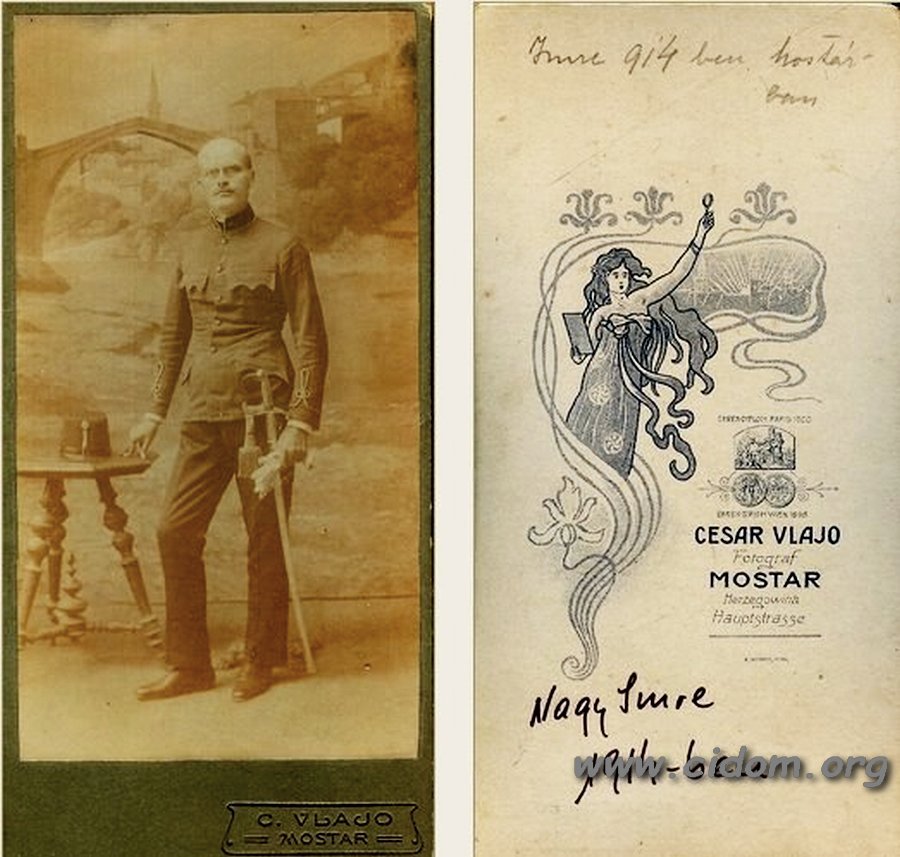 C. VLAJO
MOSTAR
Imre 914 ben Mostár-
ban
EHRENDIPLOM PARIS 1900
CESAR VLAJO
Fotograf
MOSTAR
Herzegowina
Hauptstrasse
Nagy Imre
1914-ben
www.cidom.org